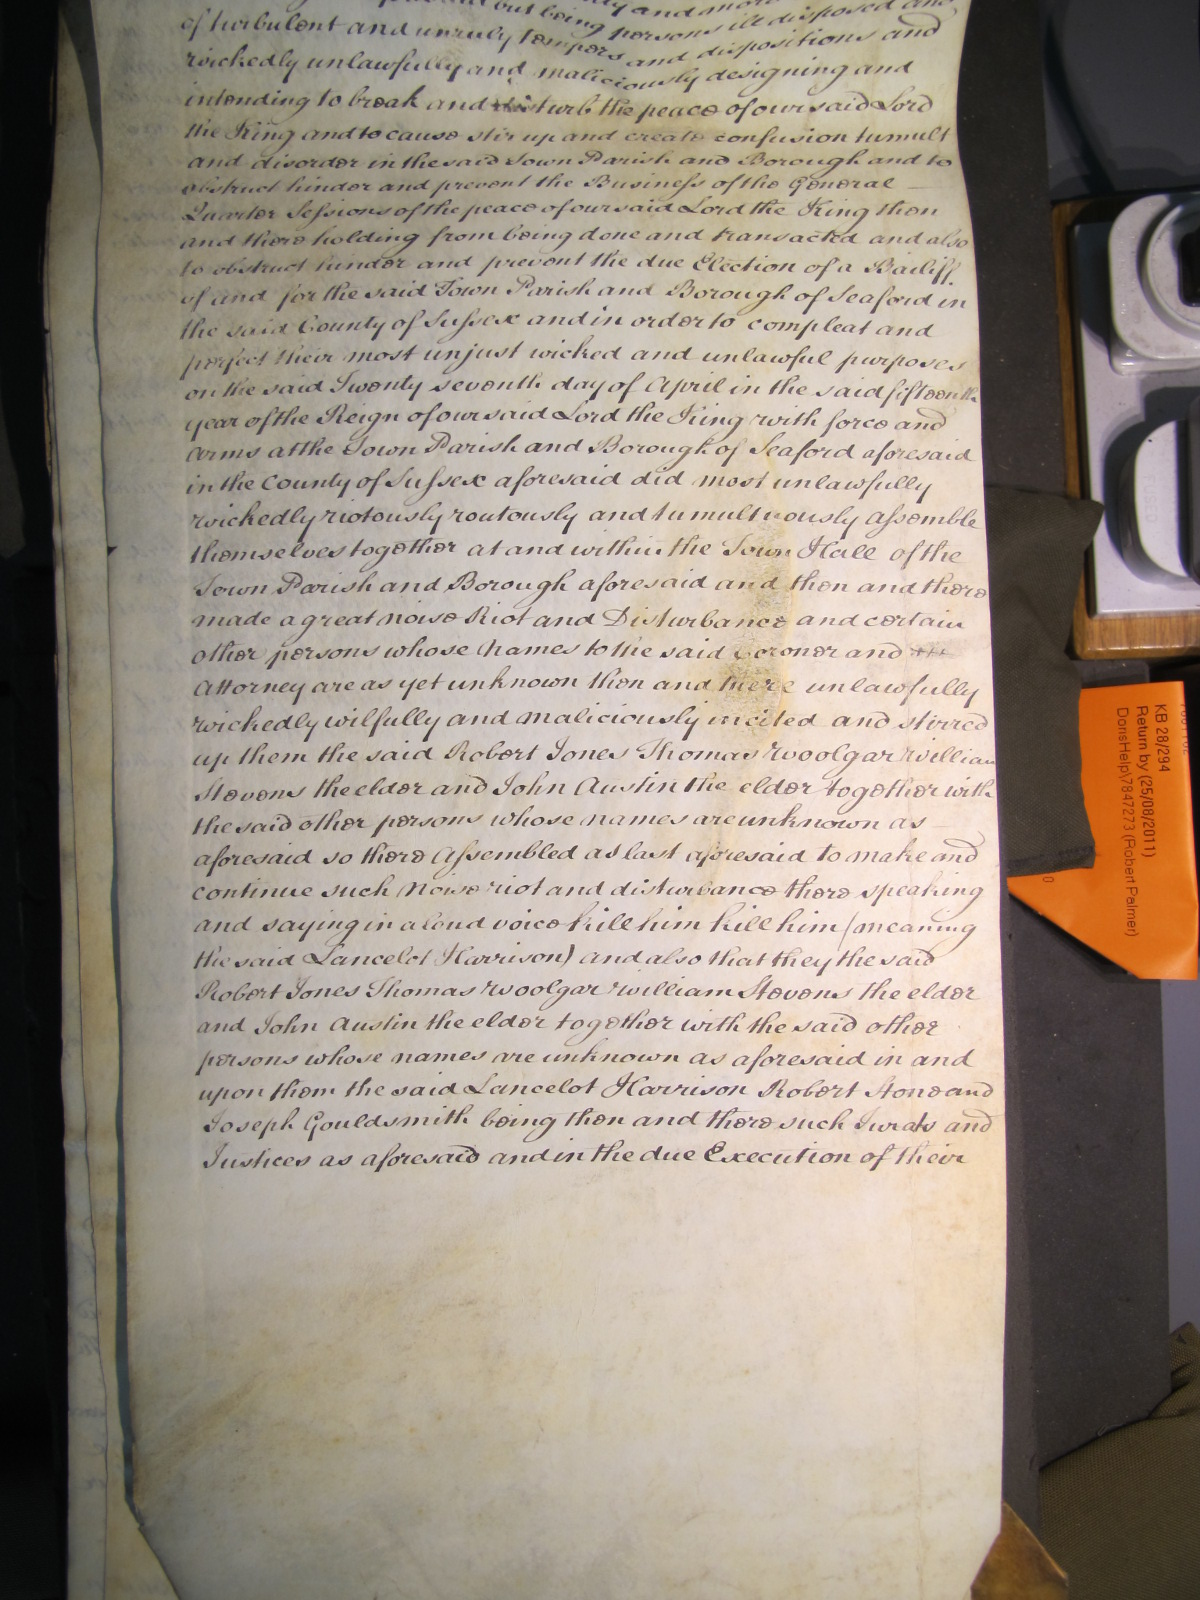 and but being persons ill disposed and
of turbulent and unruly tempers and dispositions and
wickedly unlawfully and maliciously designing and
intending to break and disturb the peace of our said Lord
the King and to cause stir up and create confusion tumult
and disorder in the said Town Parish and Borough and to
obstruct hinder and prevent the Business of the General
Quarter Sessions of the peace of our said Lord the King then
and there holding from being done and transacted and also
to obstruct hinder and prevent the due Election of a Bailiff
of and for the said Town Parish and Borough of Seaford in
the said County of Sussex and in order to compleat and
perfect their most unjust wicked and unlawful purposes
on the said Twenty seventh day of April in the said fifteenth
year of the Reign of our said Lord the King with force and
arms at the Town Parish and Borough of Seaford aforesaid
in the County of Sussex aforesaid did most unlawfully
wickedly riotously routously and tumultuously assemble
themselves together at and within the Town Hall of the
Town Parish and Borough aforesaid and then and there
made a great noise Riot and Disturbance and certain
other persons whose Names to the said Coroner and
Attorney are as yet unknown then and there unlawfully
wickedly wilfully and maliciously incited and stirred
up them the said Robert Jones Thomas Woolgar William
Stevens the elder and John Austin the elder together with
the said other persons whose names are unknown as
aforesaid so there Assembled as last aforesaid to make and
continue such Noise riot and disturbance there speaking
and saying in a loud voice kill him kill him (meaning
the said Lancelot Harrison) and also that they the said
Robert Jones Thomas Woolgar William Stevens the elder
and John Austin the elder together with the said other
persons whose names are unknown as aforesaid in and
upon them the said Lancelot Harrison Robert Stone and
Joseph Gouldsmith being then and there such Jurats and
Justices as aforesaid and in the due Execution of their
KB 28/294
Return by (25/08/2011)
DorisHelp\7847273 (Robert Palmer)